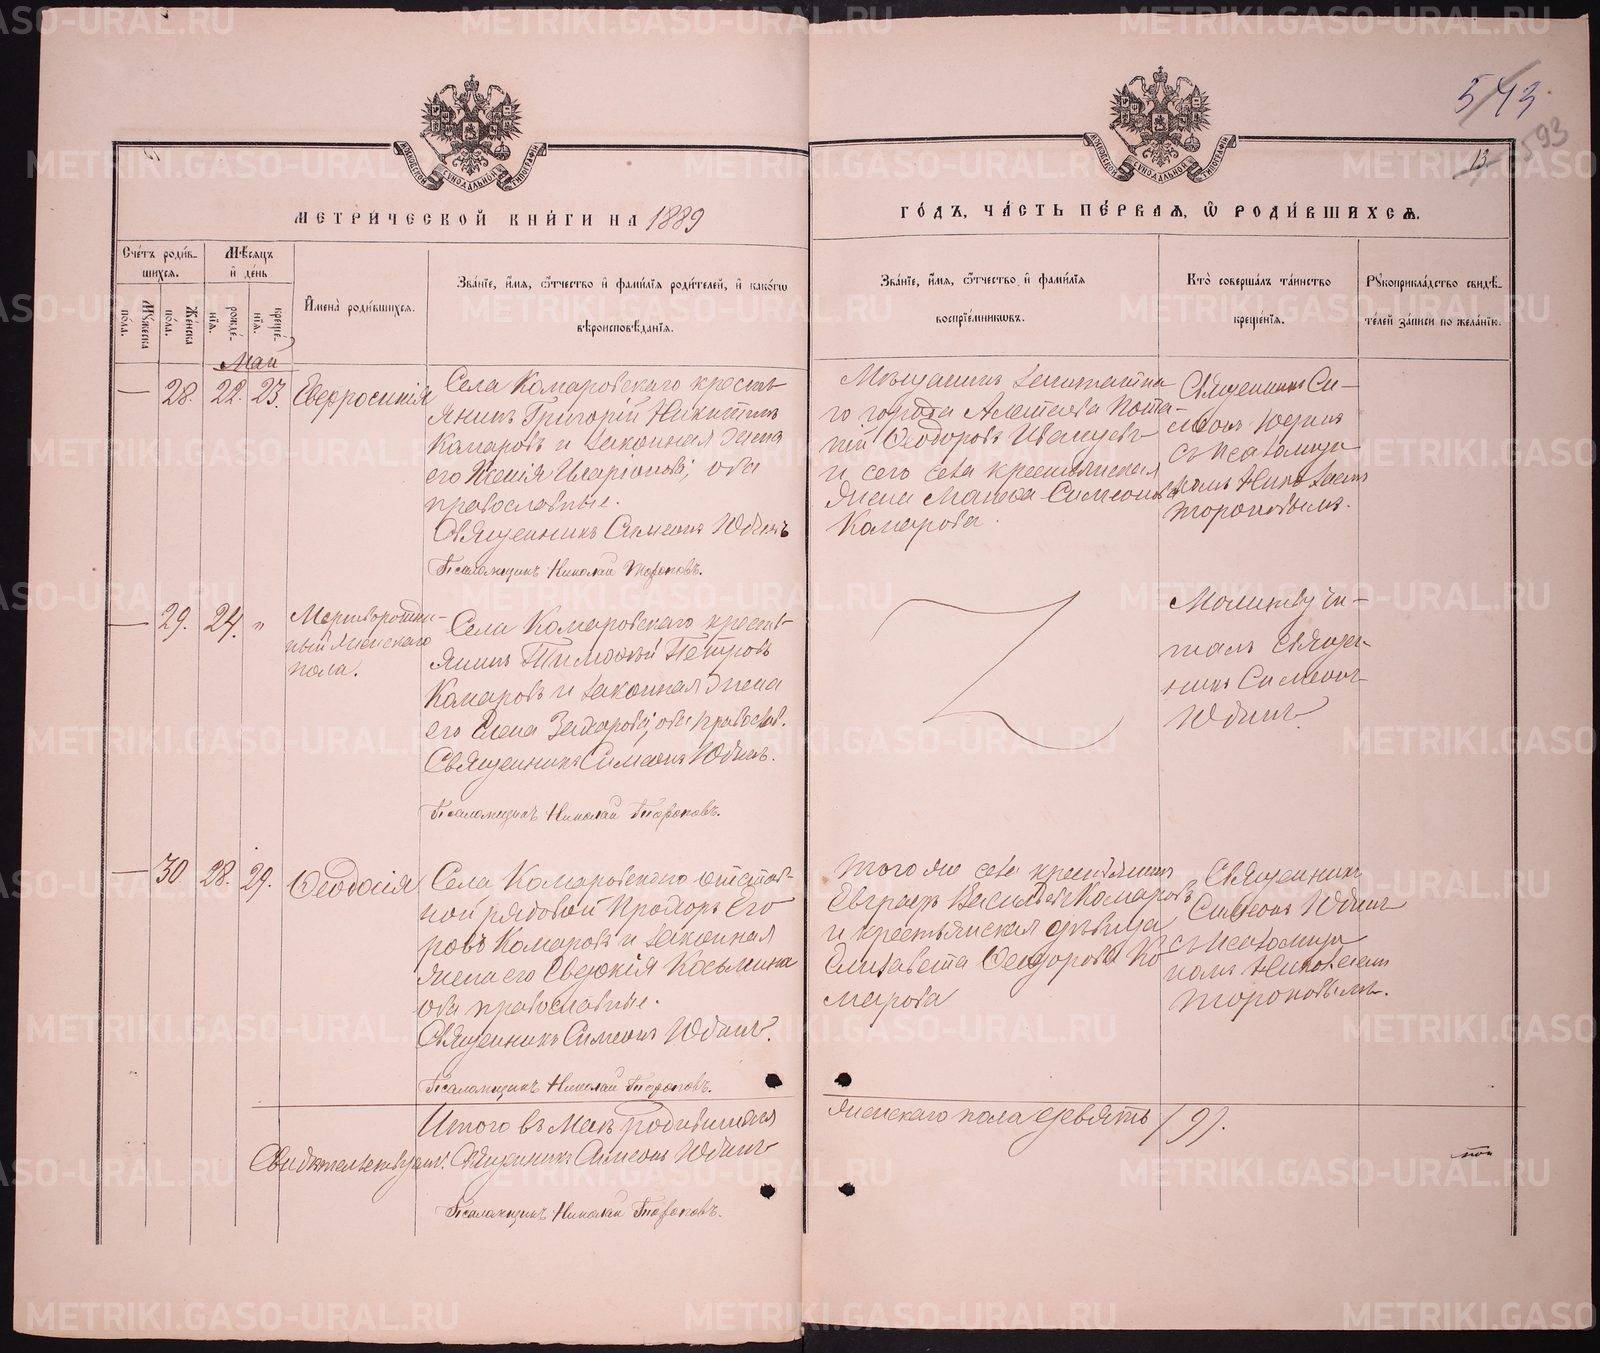 543
593
13
МОСКОВСКОЙ СѴНОДАЛЬНОЙ ТИПОГРАФІИ
МОСКОВСКОЙ СѴНОДАЛЬНОЙ ТИПОГРАФІИ
МЕТРИ́ЧЕСКОЙ КНИ́ГИ НА 1889
ГО́ДЪ, ЧА́СТЬ ПЕ́РВАЯ, Ѡ РОДИ́ВШИХСЯ.
Сче́тъ роди́в-
шихся.
Мꙋжеска по́ла.
Же́нска по́ла.
Мѣ́сяцъ и҆ де́нь
рожде́-
нїя.
креще́-
нїя.
И҆мена̀ роди́вшихся.
Зва́нїе, и҆́мя, ѻ҆́тчество и҆ фами́лїя роди́телей, и҆ како́гѡ
вѣроисповѣ́данїя.
Зва́нїе, и҆́мя, ѻ҆́тчество и҆ фами́лїя
воспрїе́мникѡвъ.
Кто̀ соверша́лъ та́инство
креще́нїя.
Рꙋкоприкла́дство свидѣ́-
телей за́писи по жела́нїю.
Май
— 28. 22. 23. Евфросинія
Села Комаровскаго кресть-
янинъ Григорій Никитинъ
Комаровъ и законная жена
его Ксенія Иларіонова; оба
православные.
Священникъ Симеонъ Юдинъ
Псаломщикъ Николай Тороповъ.
Мѣщанинъ
го города Алапаева Пота-
пій Ѳеодоровъ
и сего села крестьянская
жена Симеонова
Комарова.
Священникъ Си-
меонъ Юдинъ
съ псаломщи-
комъ Николаемъ
Тороповымъ.
— 29. 24. "
Мертворожден-
ный женскаго
пола.
Села Комаровскаго кресть-
янинъ Тимоѳей Петровъ
Комаровъ и законная жена
его Елена Захарова; оба православ.
Священникъ Симеонъ Юдинъ.
Псаломщикъ Николай Тороповъ.
Молитву чи-
талъ Священ-
никъ Симеонъ
Юдинъ.
— 30 28. 29. Ѳеодосія
Села Комаровскаго отстав-
ной рядовой Прохоръ Его-
ровъ Комаровъ и законная
жена его Евдокія Косьмина
оба православные.
Священникъ Симеонъ Юдинъ.
Псаломщикъ Николай Тороповъ.
Того же села крестьянинъ
Евграфъ Васильевъ Комаровъ
и крестьянская дѣвица
Елизавета Ѳеодорова Ко-
марова
Священникъ
Симеонъ Юдинъ
съ псаломщи-
комъ Николаемъ
Тороповымъ.
Итого въ Маѣ родившихся
женскаго пола девять (9).
Свидѣтельствуемъ: Священникъ Симеонъ Юдинъ
Псаломщикъ Николай Тороповъ.